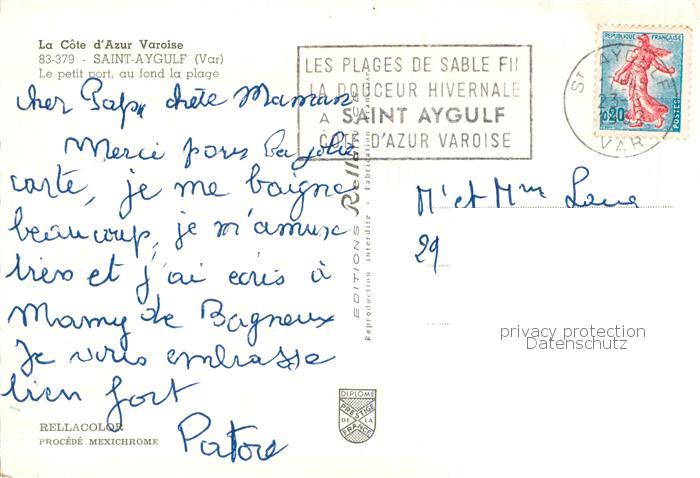 La Côte d'Azur Varoise
83-379 - SAINT-AYGULF (Var)
Le petit port, au fond la plage
cher Papa chère Maman
Merci pour la jolie
carte, je me baigne
beaucoup, je m'amuse
bien et j'ai écris à
Mamy de Bagneux
Je vous embrasse
bien fort
Patore
RELLACOLOR
PROCÉDÉ MEXICHROME
LES PLAGES DE SABLE FIN
LA DOUCEUR HIVERNALE
A SAINT AYGULF
CÔTE D'AZUR VAROISE
REPUBLIQUE FRANÇAISE
0,20
POSTES
ST AYGULF
VAR
EDITIONS Rella
Reproduction interdite - Fabrication française
Mr et Mme
29
privacy protection
Datenschutz
DIPLOME
PRESTIGE
DE LA
FRANCE